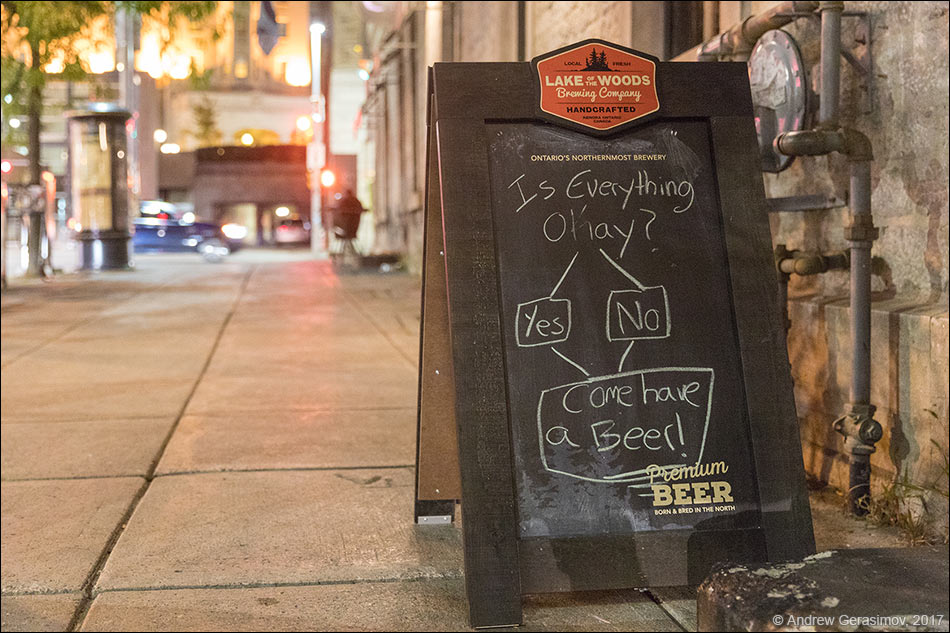 LOCAL FRESH
LAKE OF THE WOODS
Brewing Company
HANDCRAFTED
KENORA ONTARIO
CANADA
ONTARIO'S NORTHERNMOST BREWERY
Is Everything
Okay?
Yes No
Come have
a Beer!
Premium
BEER
BORN & BRED IN THE NORTH
© Andrew Gerasimov, 2017